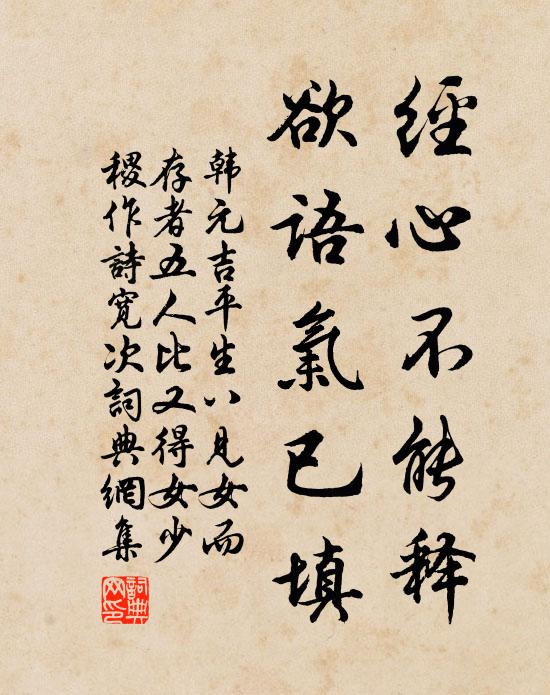 經心不能释
欲語氣已填
韩元吉平生八見女而
存者五人比又得女少
稷作詩寬次詞典網集
詞典网印